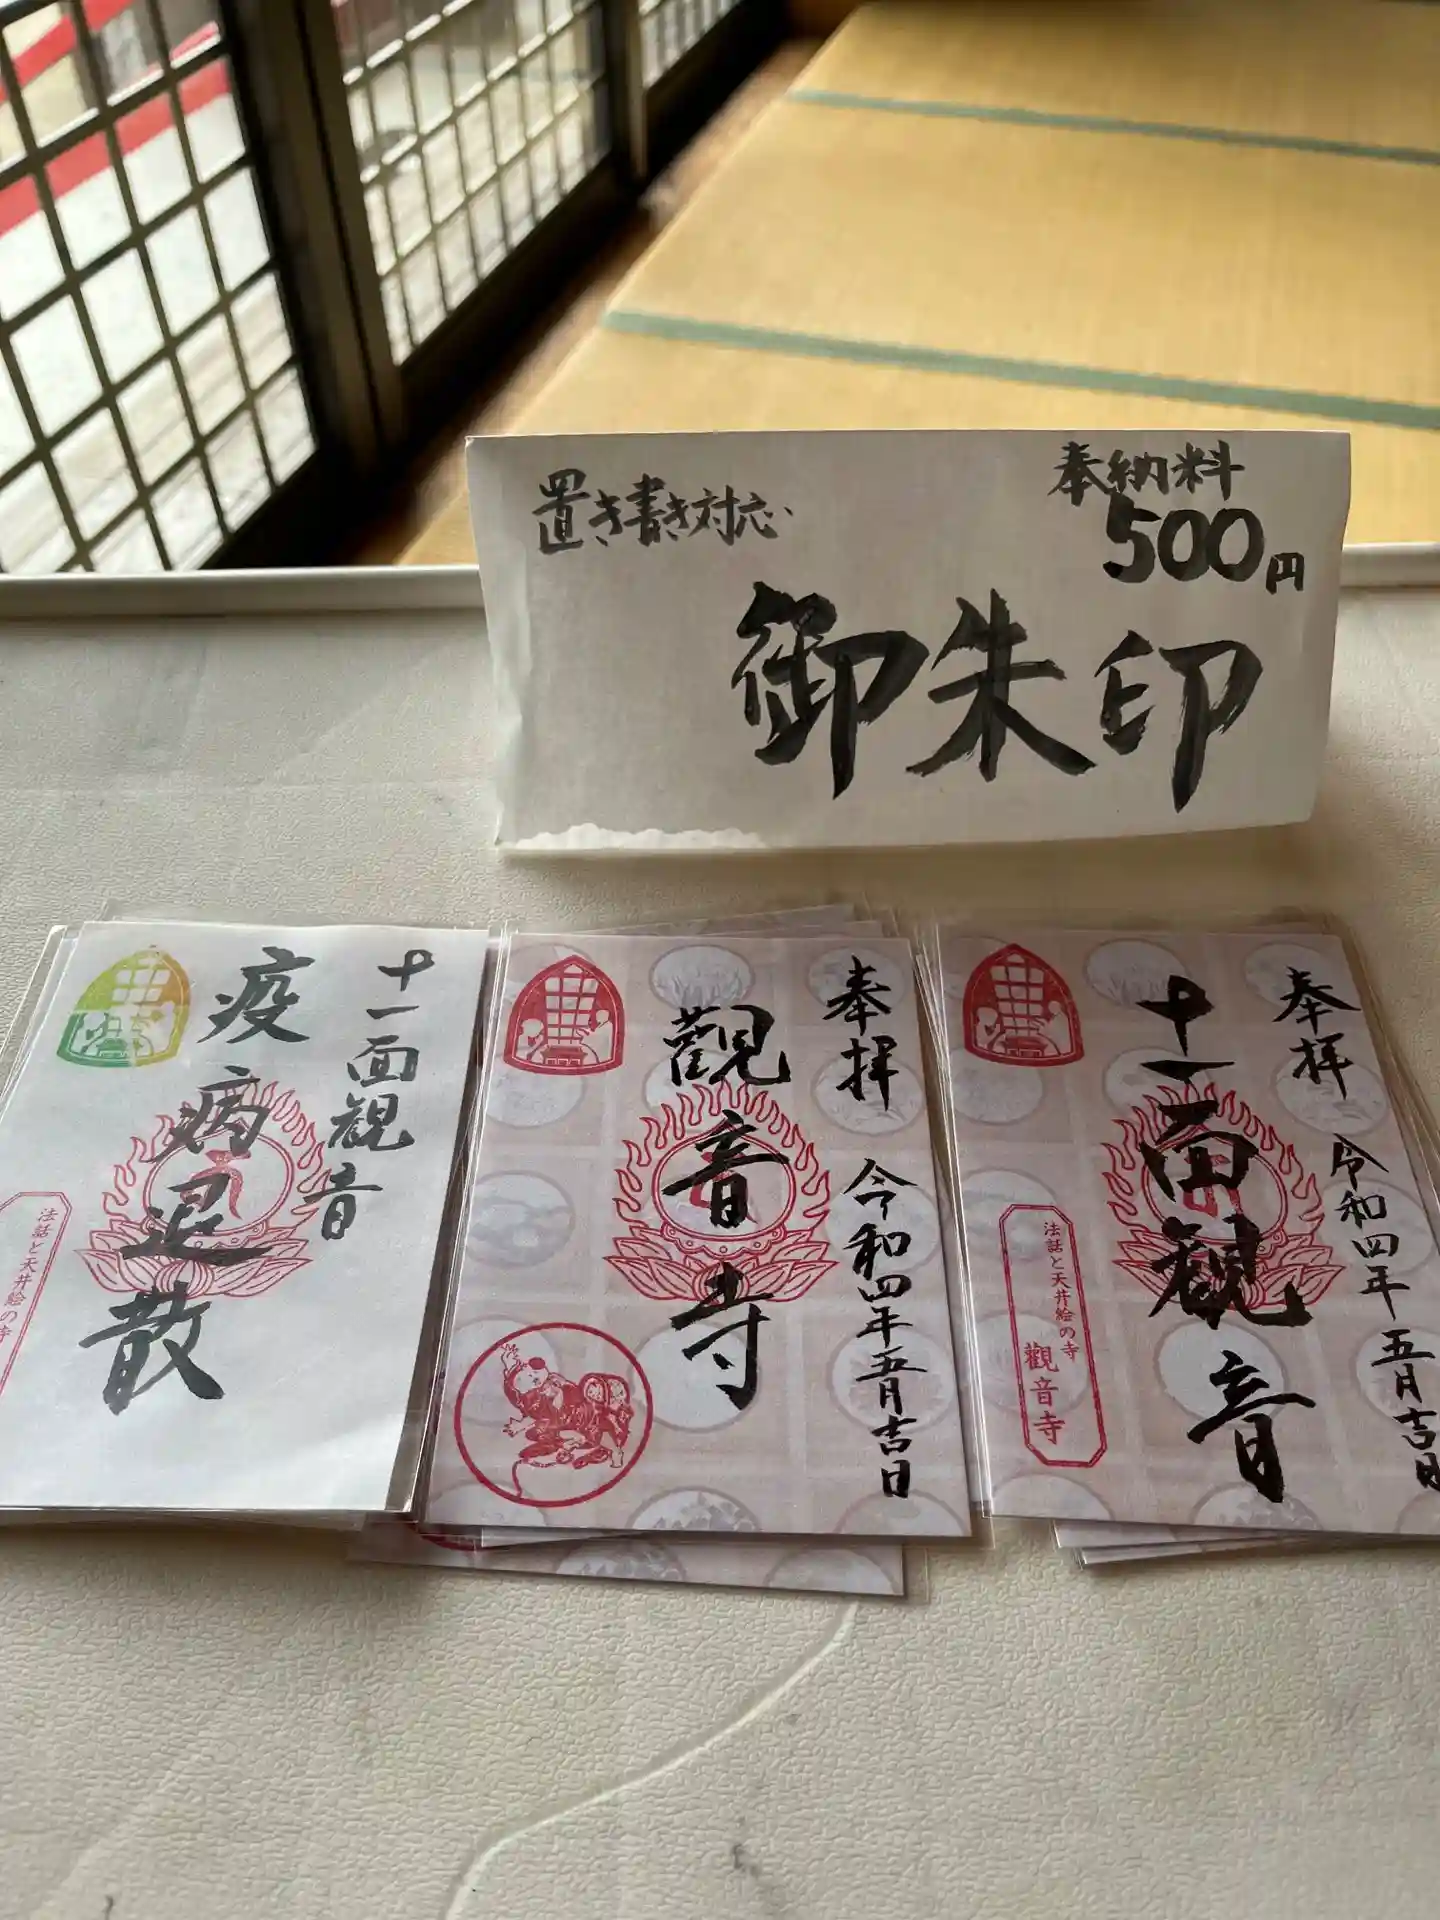 置き書き対応
奉納料
500円
御朱印
十一面観音
疫病退散
法話と天井絵の寺
奉拝
令和四年五月吉日
觀音寺
奉拝
令和四年五月吉日
十一面観音
法話と天井絵の寺
觀音寺